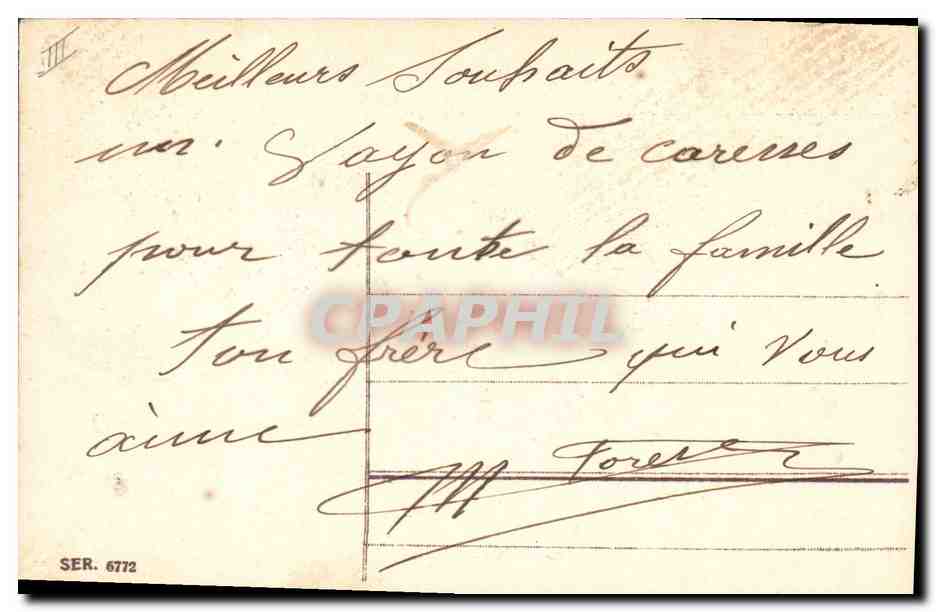 III
Meilleurs Souhaits
un Vayon de caresses
pour toute la famille
ton frère qui vous
aime
M
CPAPHIL
SER. 6772